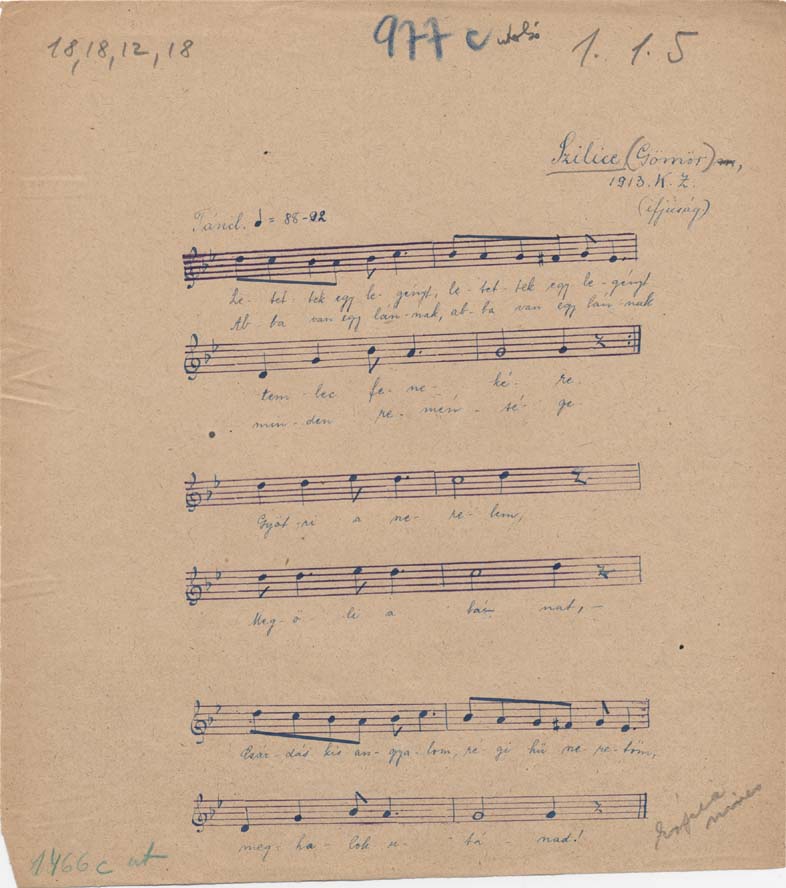 18,18,12,18
977 c utolsó 1. 1. 5
Szilice (Gömör),
1913. K. Z.
(ifjúság)
Táncl. = 88-92
Le-tet-tek egy le-gényt, le-tet-tek egy le-gényt
Ab-ba van egy lán-nak, ab-ba van egy lán-nak
tem-lec fe-ne-ké-re.
min-den re-mén-sé-ge
Gyöt-ri a ne-re-lem,
Meg-ö-li a bán nat,-
Csár-dás kis an-gya-lom, ré-gi hű ne-re-töm,
meg-ha-lok u-tá-nad!
nincs
1466c ut